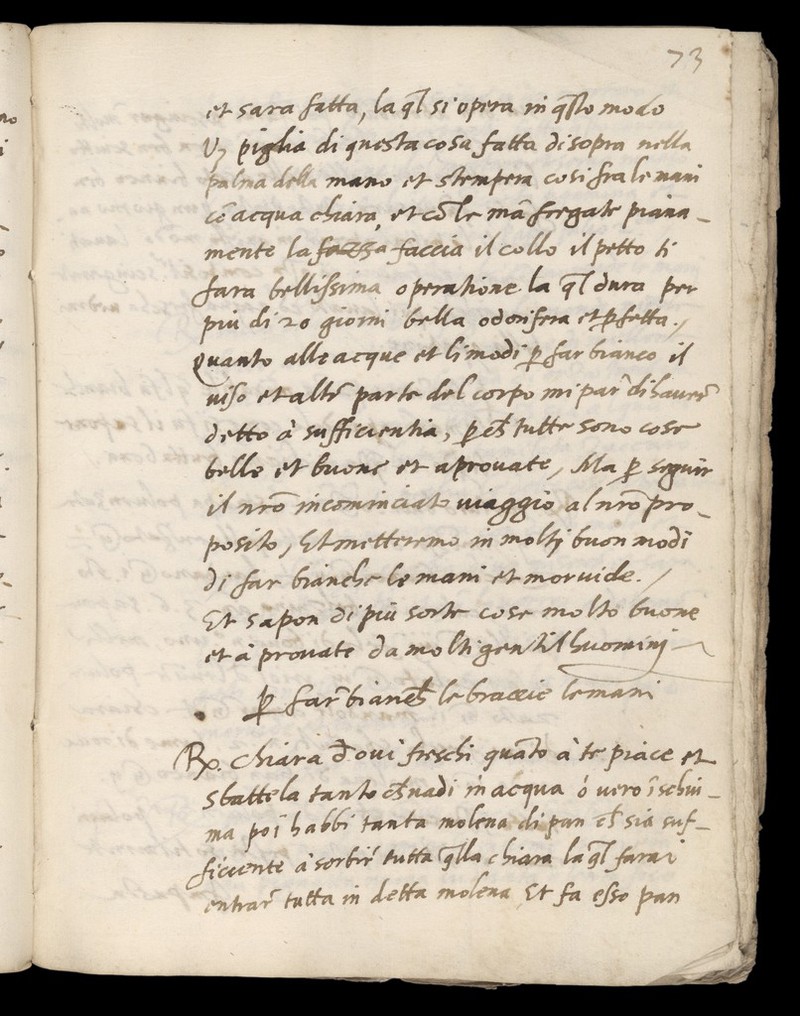 73
et sara fatta, la ql̃ si opera in q̃sto modo
Vz piglia di questa cosa fatta disopra nella
palma della mano et stempera cosi fra le mani
cõ acqua chiara, et cõ le mã fregate piana_
mente la fazza faccia il collo il petto ti
fara bellissima operatione la ql̃ dura per
piu di 20 giorni bella odorifera et ꝑfetta./
Quanto alle acque et li modi ꝑ far bianco il
viso et altr̃ parte del corpo mi par̃ di haver̃
detto à sufficientia, ꝑch̃ tutte sono cose
belle et buone et aprovate, Ma ꝑ seguir
il nr̃o incominciato viaggio al nr̃o pro_
posito, Et metteremo in moltj buon modi
di far bianche le mani et morvide./
Et sapon di più sorte cose molto buone
et à provate da molti gentilhuominj
ꝑ far̃ bianch̃ le braccie le mani
Rp. Chiara d̃ ovi freschi quãto à te piace et
sbattela tanto ch̃ nadi in acqua ó vero ĩ schiu_
ma poi habbi tanta molena di pan ch̃ sia suf_
ficiente à sorbir̃ tutta q̃lla chiara la ql̃ farai
entrar̃ tutta in detta molena Et fa esso pan